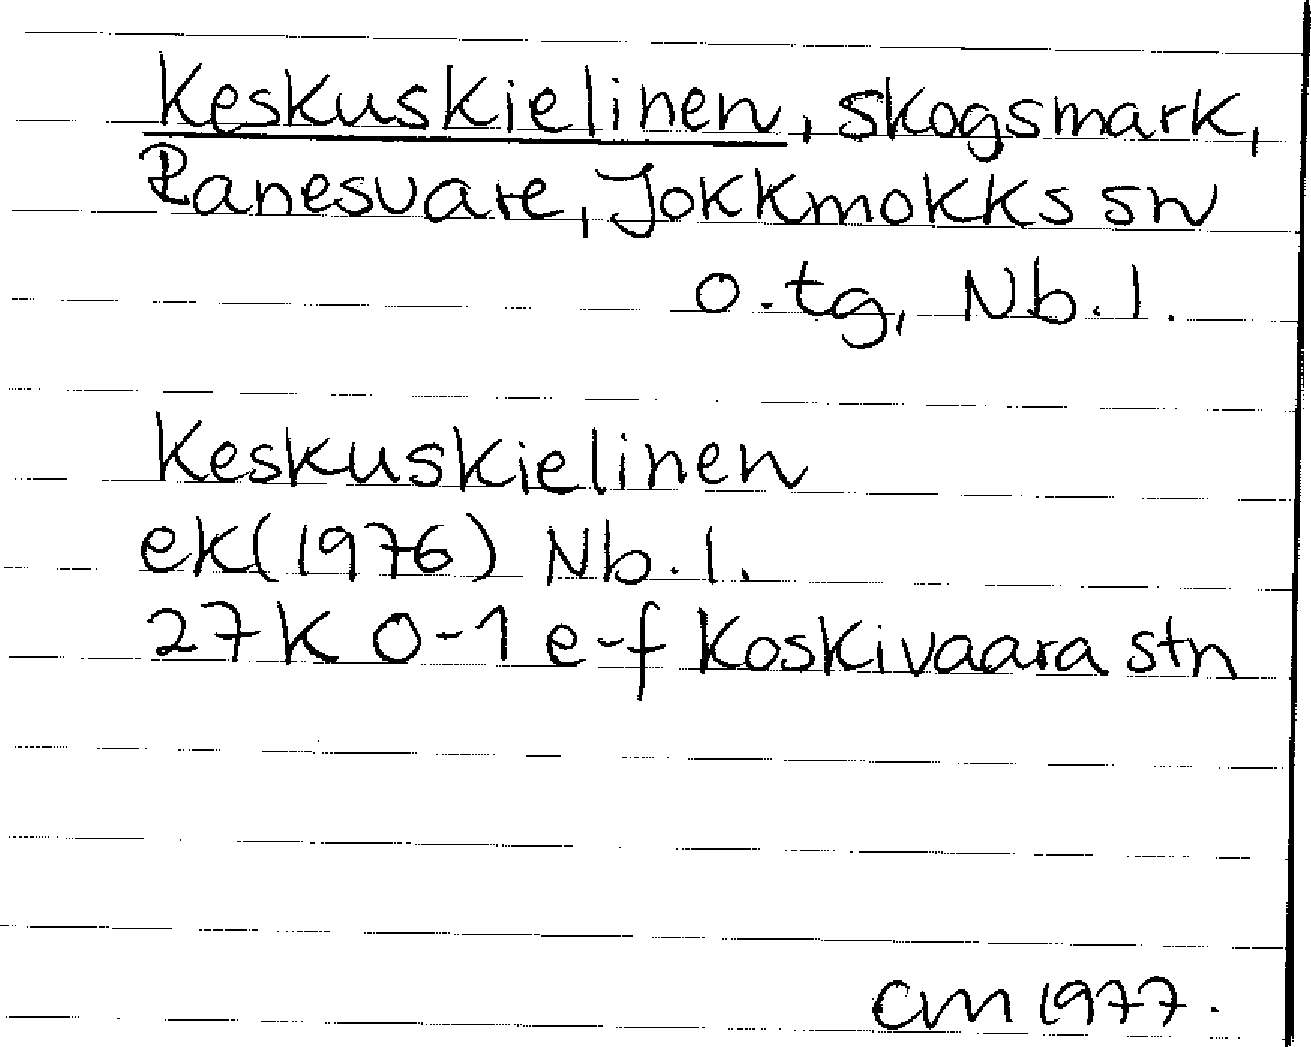 Keskuskielinen, skogsmark,
Ranesvare, Jokkmokks sn
o.tg, Nb.l.
Keskuskielinen
ek(1976) Nb.l.
27K 0-1 e-f Koskivaara stn
CM 1977.